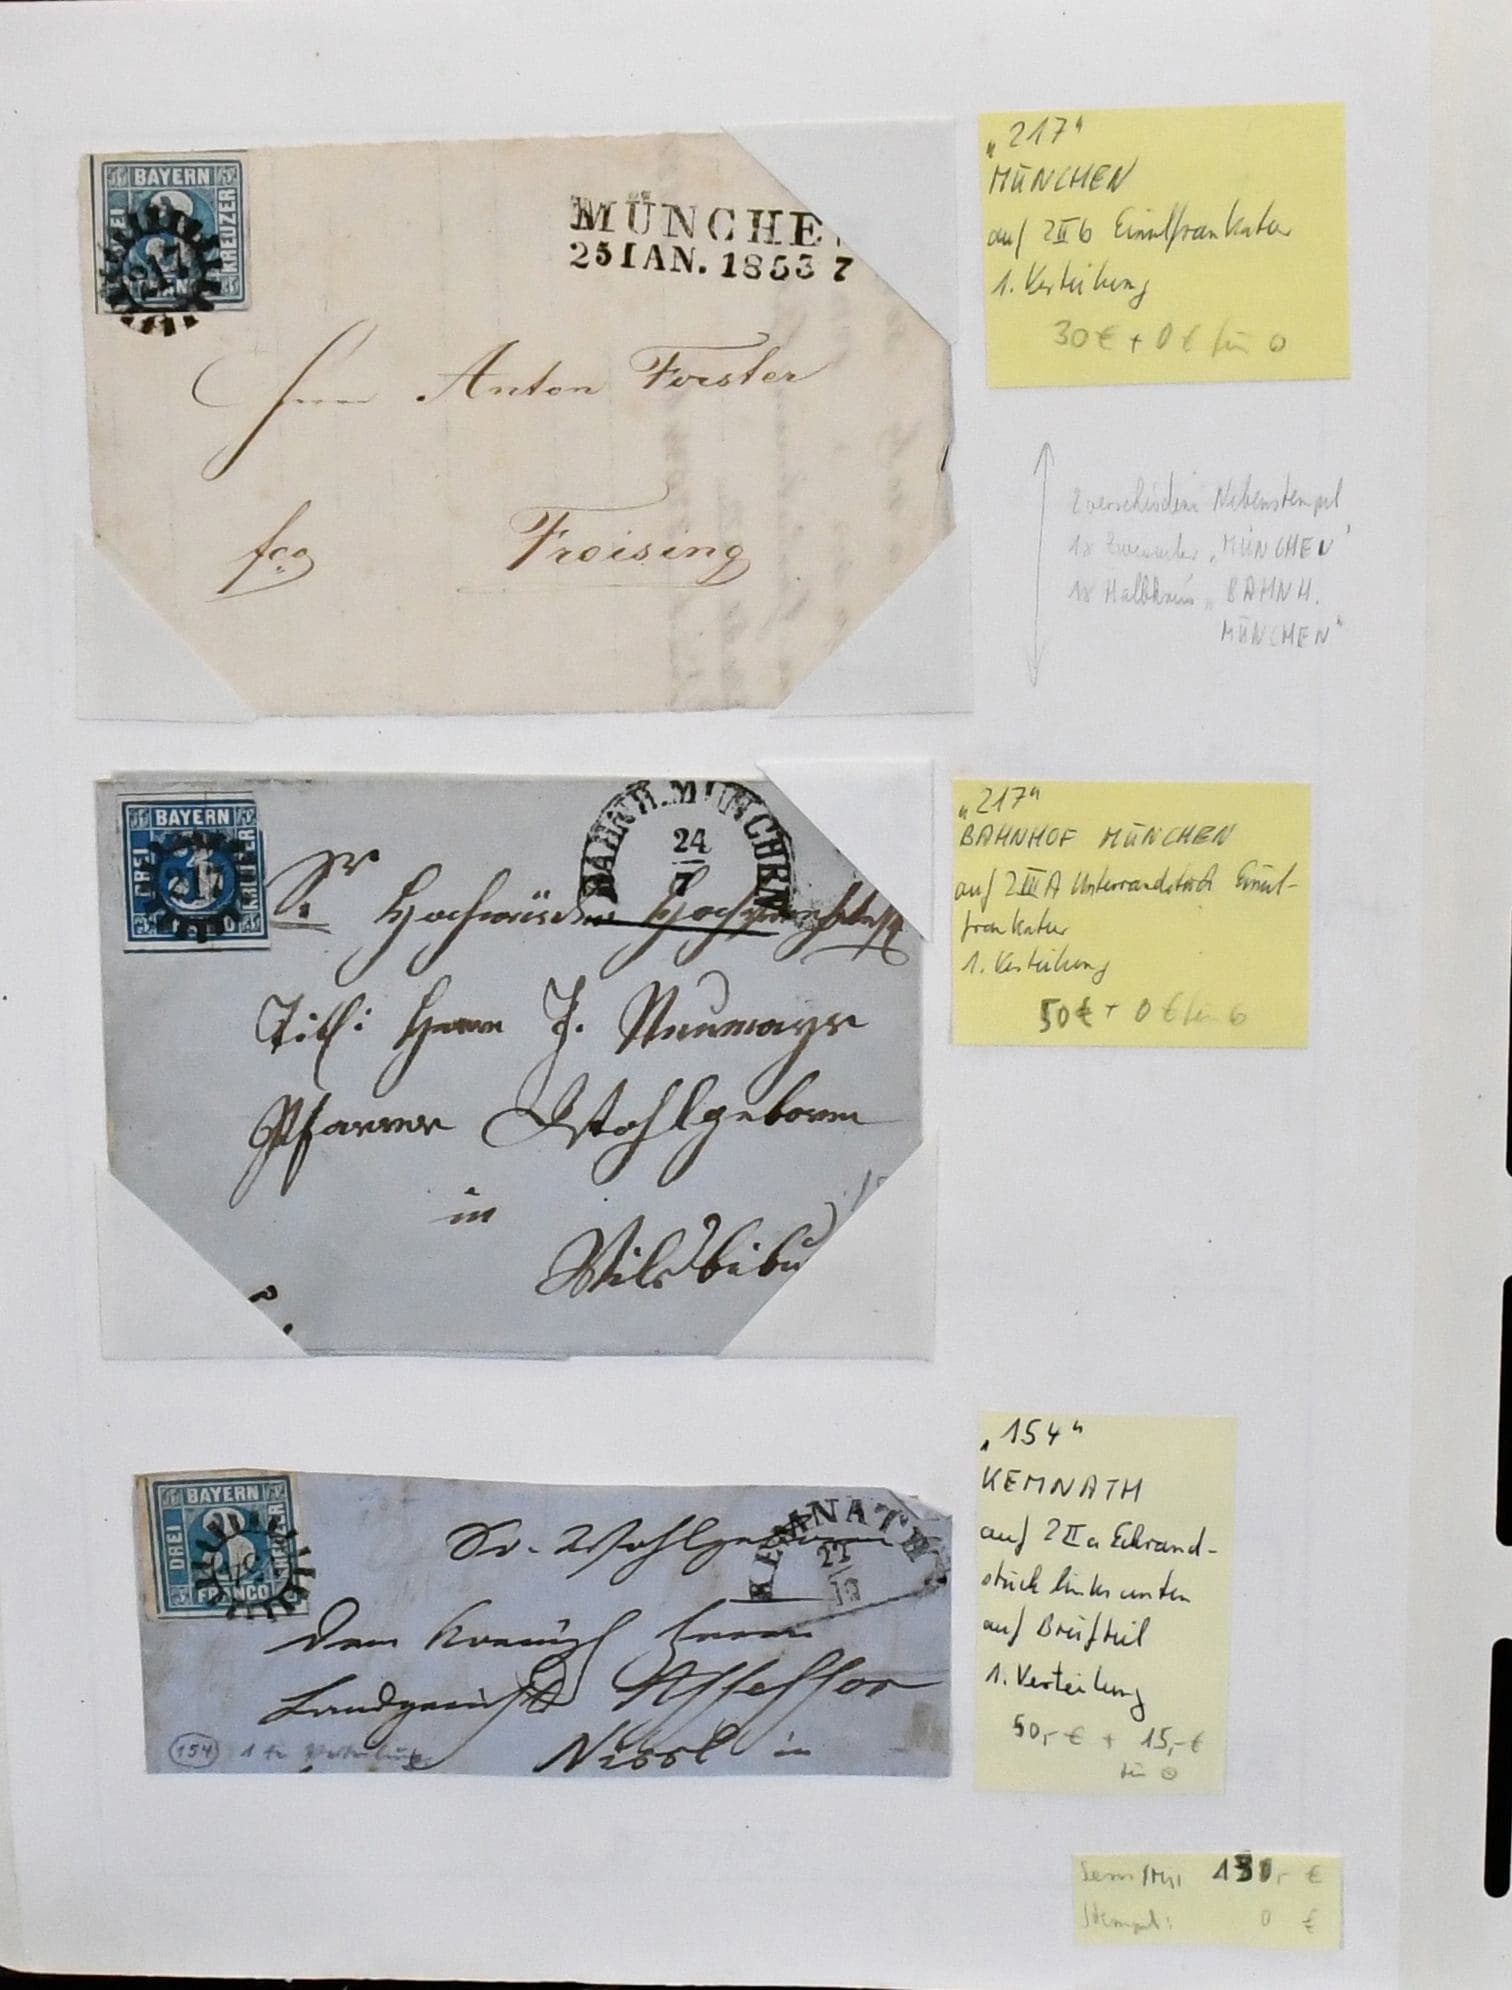 BAYERN
DREI
KREUZER
217
MÜNCHE
25 IAN. 1853 7
Herrn Anton Forster
fco Freising
„217“
MÜNCHEN
auf 2 II 6 Einzelfrankatur
1. Verteilung
30 € + 0 € für
2 verschiedene Nebenstempel
1x Zweizeiler „MÜNCHEN“
1x Halbkreis „BAHNH.
MÜNCHEN“
BAYERN
DREI
KREUZER
217
BAHNH. MÜNCHEN
24
7
Sr Hochwürden
Titl: Herrn J. Neumayr
Pfarrer Wohlgeboren
in
Vilsbibu
„217“
BAHNHOF MÜNCHEN
auf 2 III A Unterrandstück Einzel-
frankatur
1. Verteilung
50 € + 0 € für
BAYERN
DREI
KREUZER
FRANCO
154
KEMNATH
Sr. Wohlgeboren
dem königl Herrn
Landgericht Assessor
in
154 1te Verteilung
„154“
KEMNATH
auf 2 II a Eckrand-
stück links unten
auf Briefteil
1. Verteilung
50,- € + 15,- €
für
€
Stempel: 0 €